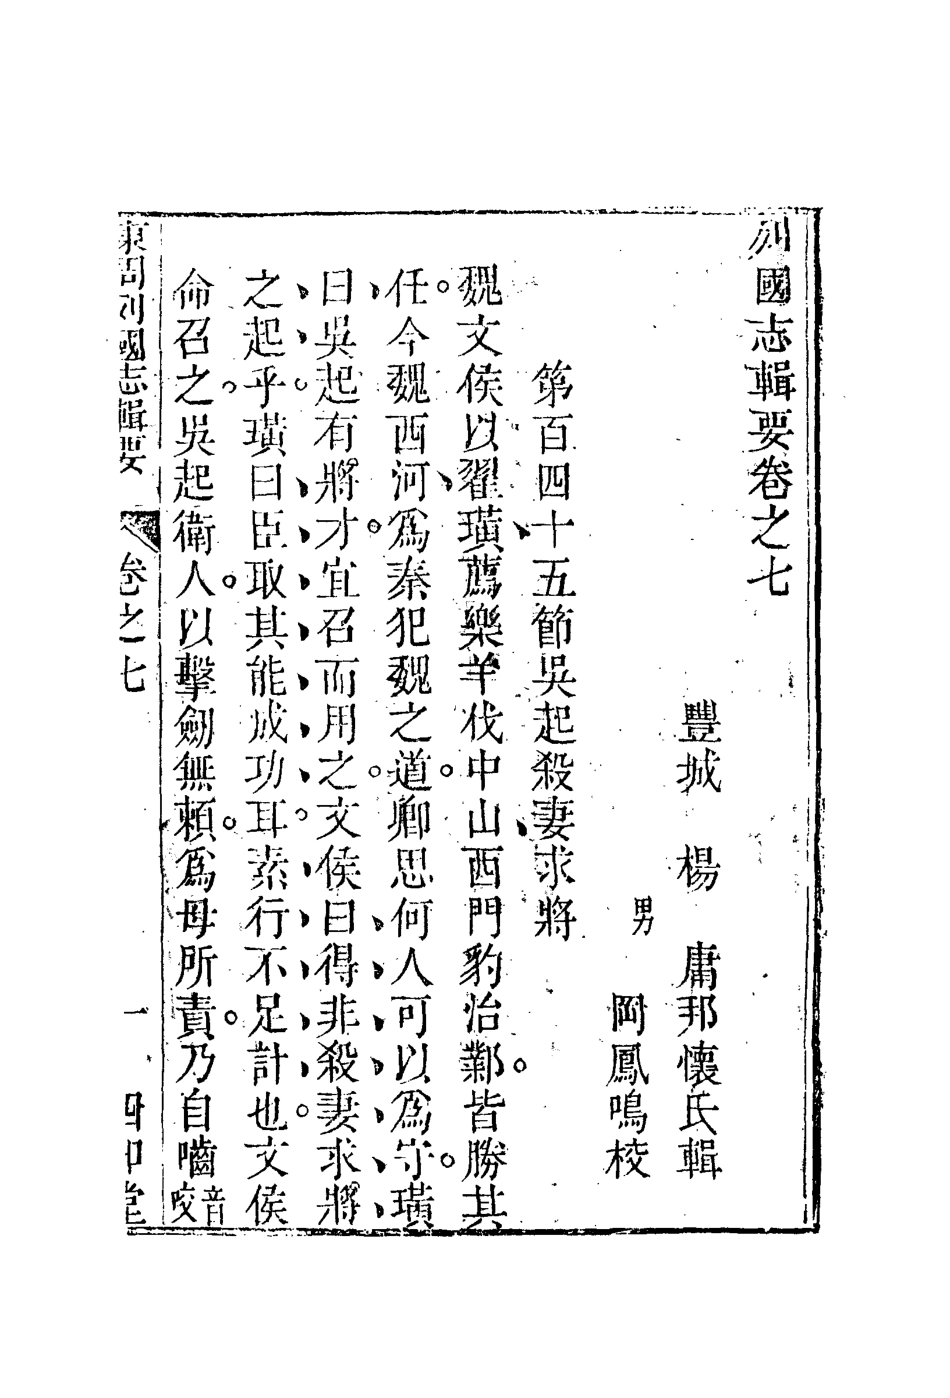 列國志輯要卷之七
豐城　楊　庸邦懷氏輯
男　岡鳳鳴校
第百四十五節吳起殺妻求將
魏文侯以翟璜薦樂羊伐中山西門豹治鄴皆勝其
任今魏西河爲秦犯魏之道卿思何人可以爲守璜
曰吳起有將才宜召而用之文侯曰得非殺妻求將
之起乎璜曰臣取其能成功耳素行不足計也文侯
命召之吳起衛人以擊劒無賴爲母所責乃自嚙音咬
東周列國志輯要　卷之七　一　四印堂